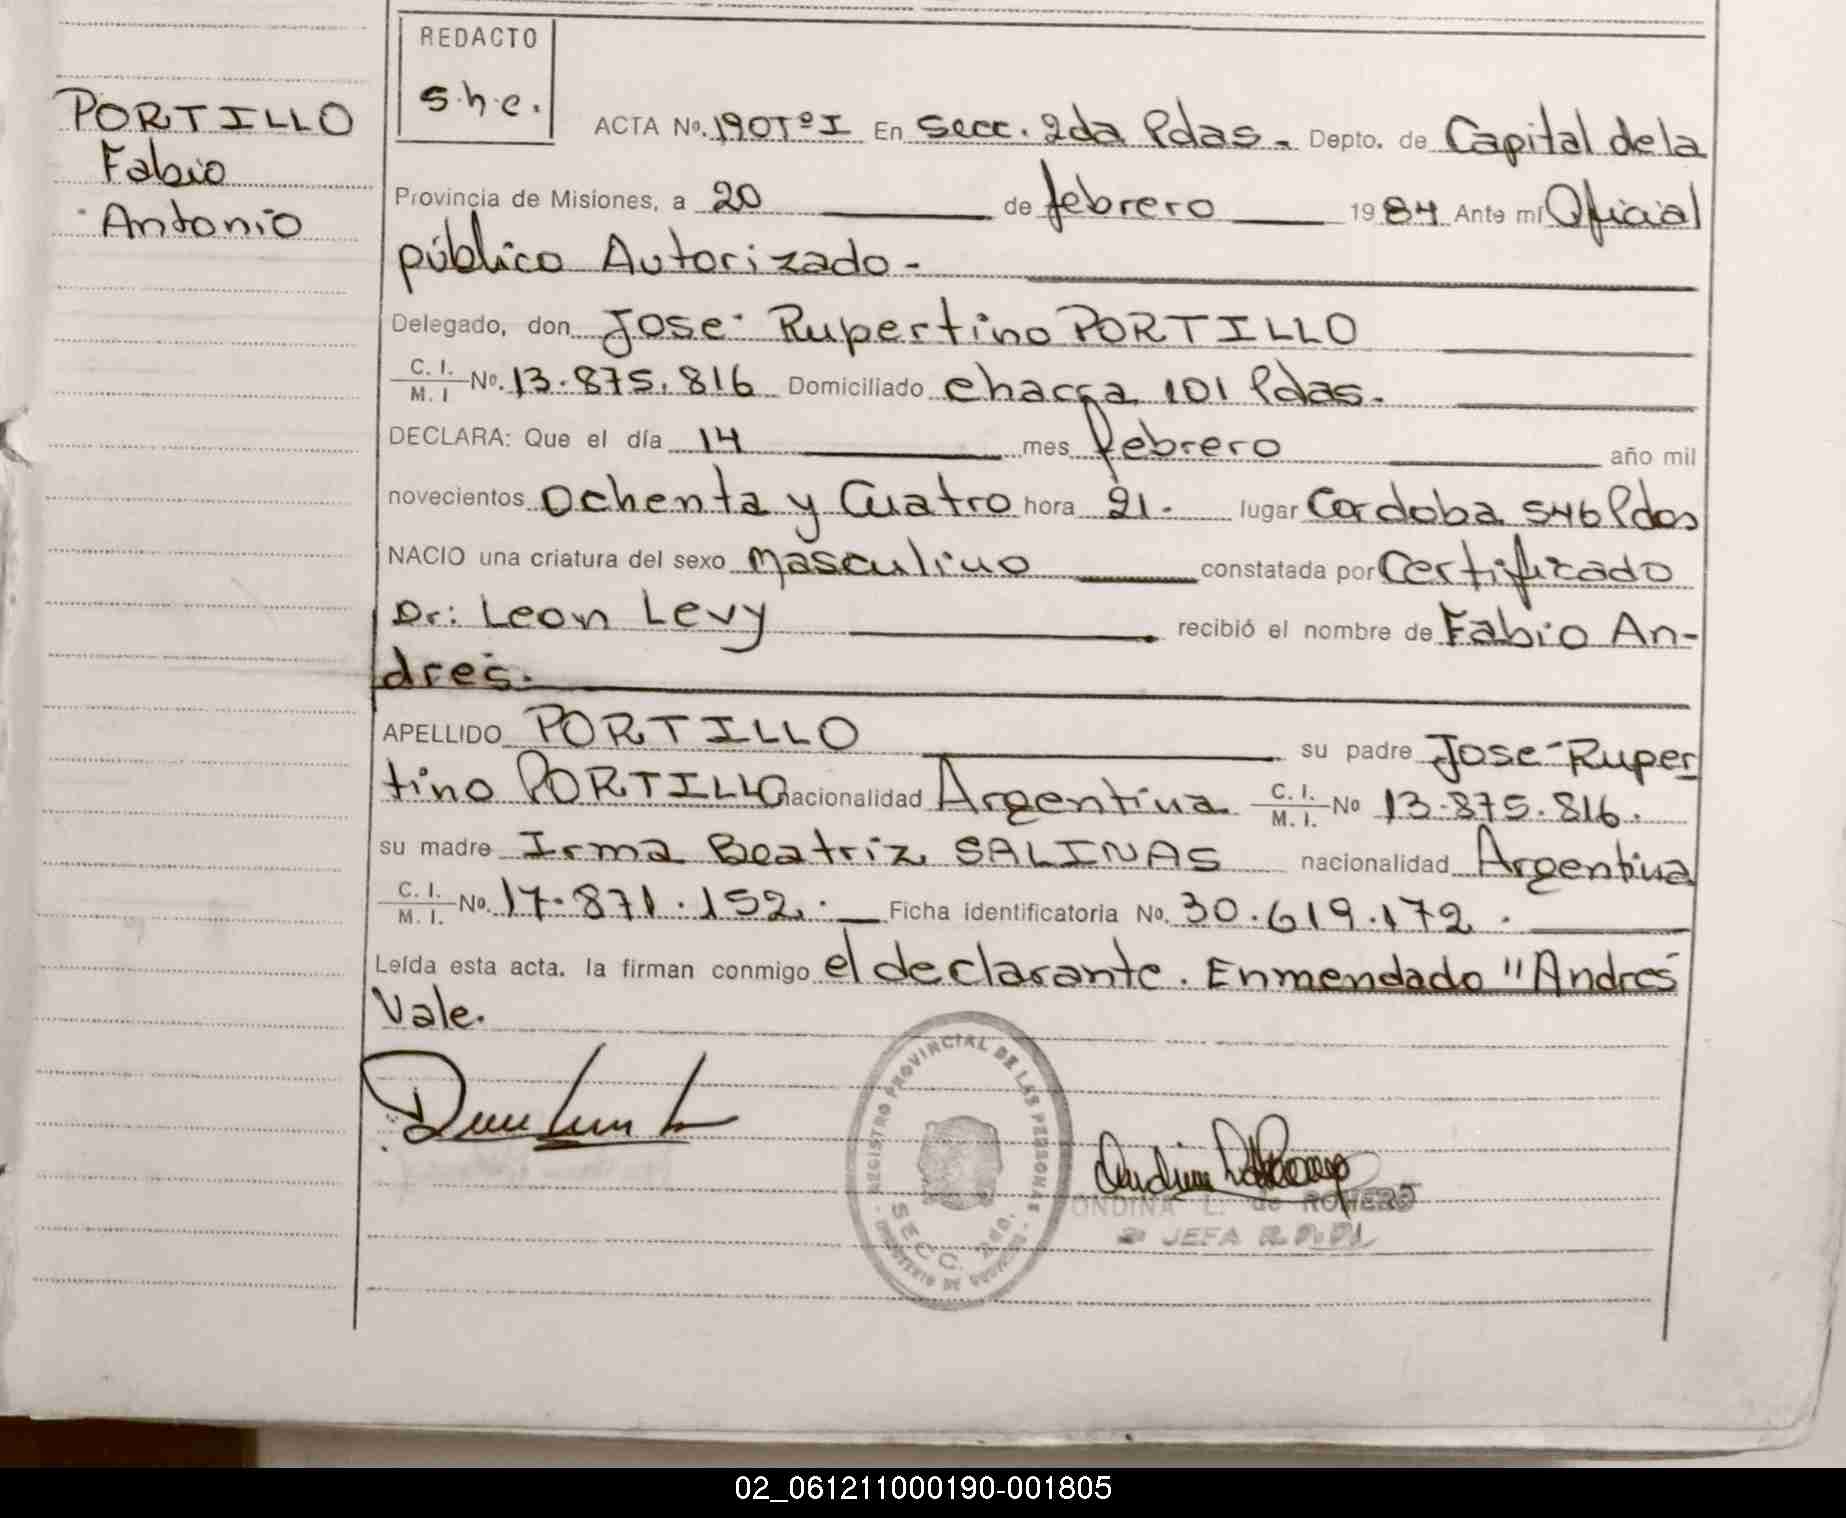 REDACTO
s.h.c.
PORTILLO
Fabio
Antonio
ACTA Nº. 190 Tº I En Secc. 2da Pdas. Depto. de Capital de la
Provincia de Misiones, a 20 de febrero 1984 Ante mí Oficial
público Autorizado.-
Delegado, don José Rupertino PORTILLO
C. I. / M. I Nº. 13.875.816 Domiciliado chacra 101 Pdas.
DECLARA: Que el día 14 mes febrero año mil
novecientos Ochenta y Cuatro hora 21. lugar Cordoba 546 Pdas
NACIO una criatura del sexo Masculino constatada por Certificado
Dr: Leon Levy recibió el nombre de Fabio An-
drés.
APELLIDO PORTILLO su padre José Ruper
tino PORTILLO nacionalidad Argentina C. I. / M. I. Nº 13.875.816.
su madre Irma Beatriz SALINAS nacionalidad Argentina
C. I. / M. I. Nº. 17.871.152. Ficha identificatoria Nº. 30.619.172.
Leída esta acta, la firman conmigo el declarante. Enmendado "Andrés
Vale.
REGISTRO PROVINCIAL DE LAS PERSONAS
SECC. 2da.
MINISTERIO DE GOBIERNO
ONDINA L. de ROMERO
JEFA
02_061211000190-001805